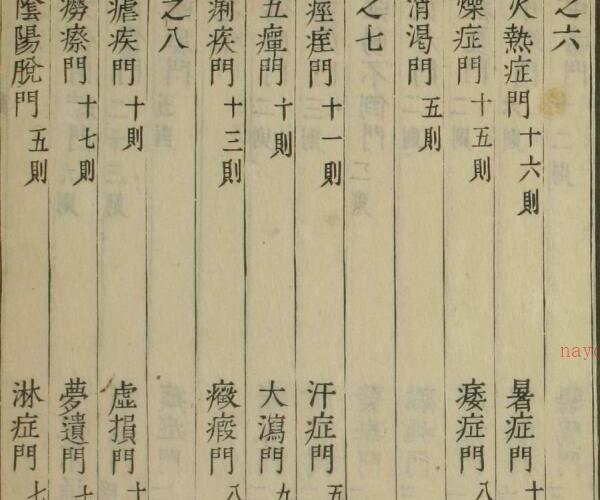 之六
火熱症門 十六則 暑症門 十
燥症門 十五則 痿症門 八
消渴門 五則
之七
痙痓門 十一則 汗症門 五
五癉門 十則 大瀉門 九
痢疾門 十三則 癥瘕門 八
之八
瘧疾門 十則 虛損門 十
癆瘵門 十七則 夢遺門 十
陰陽脫門 五則 淋症門 七